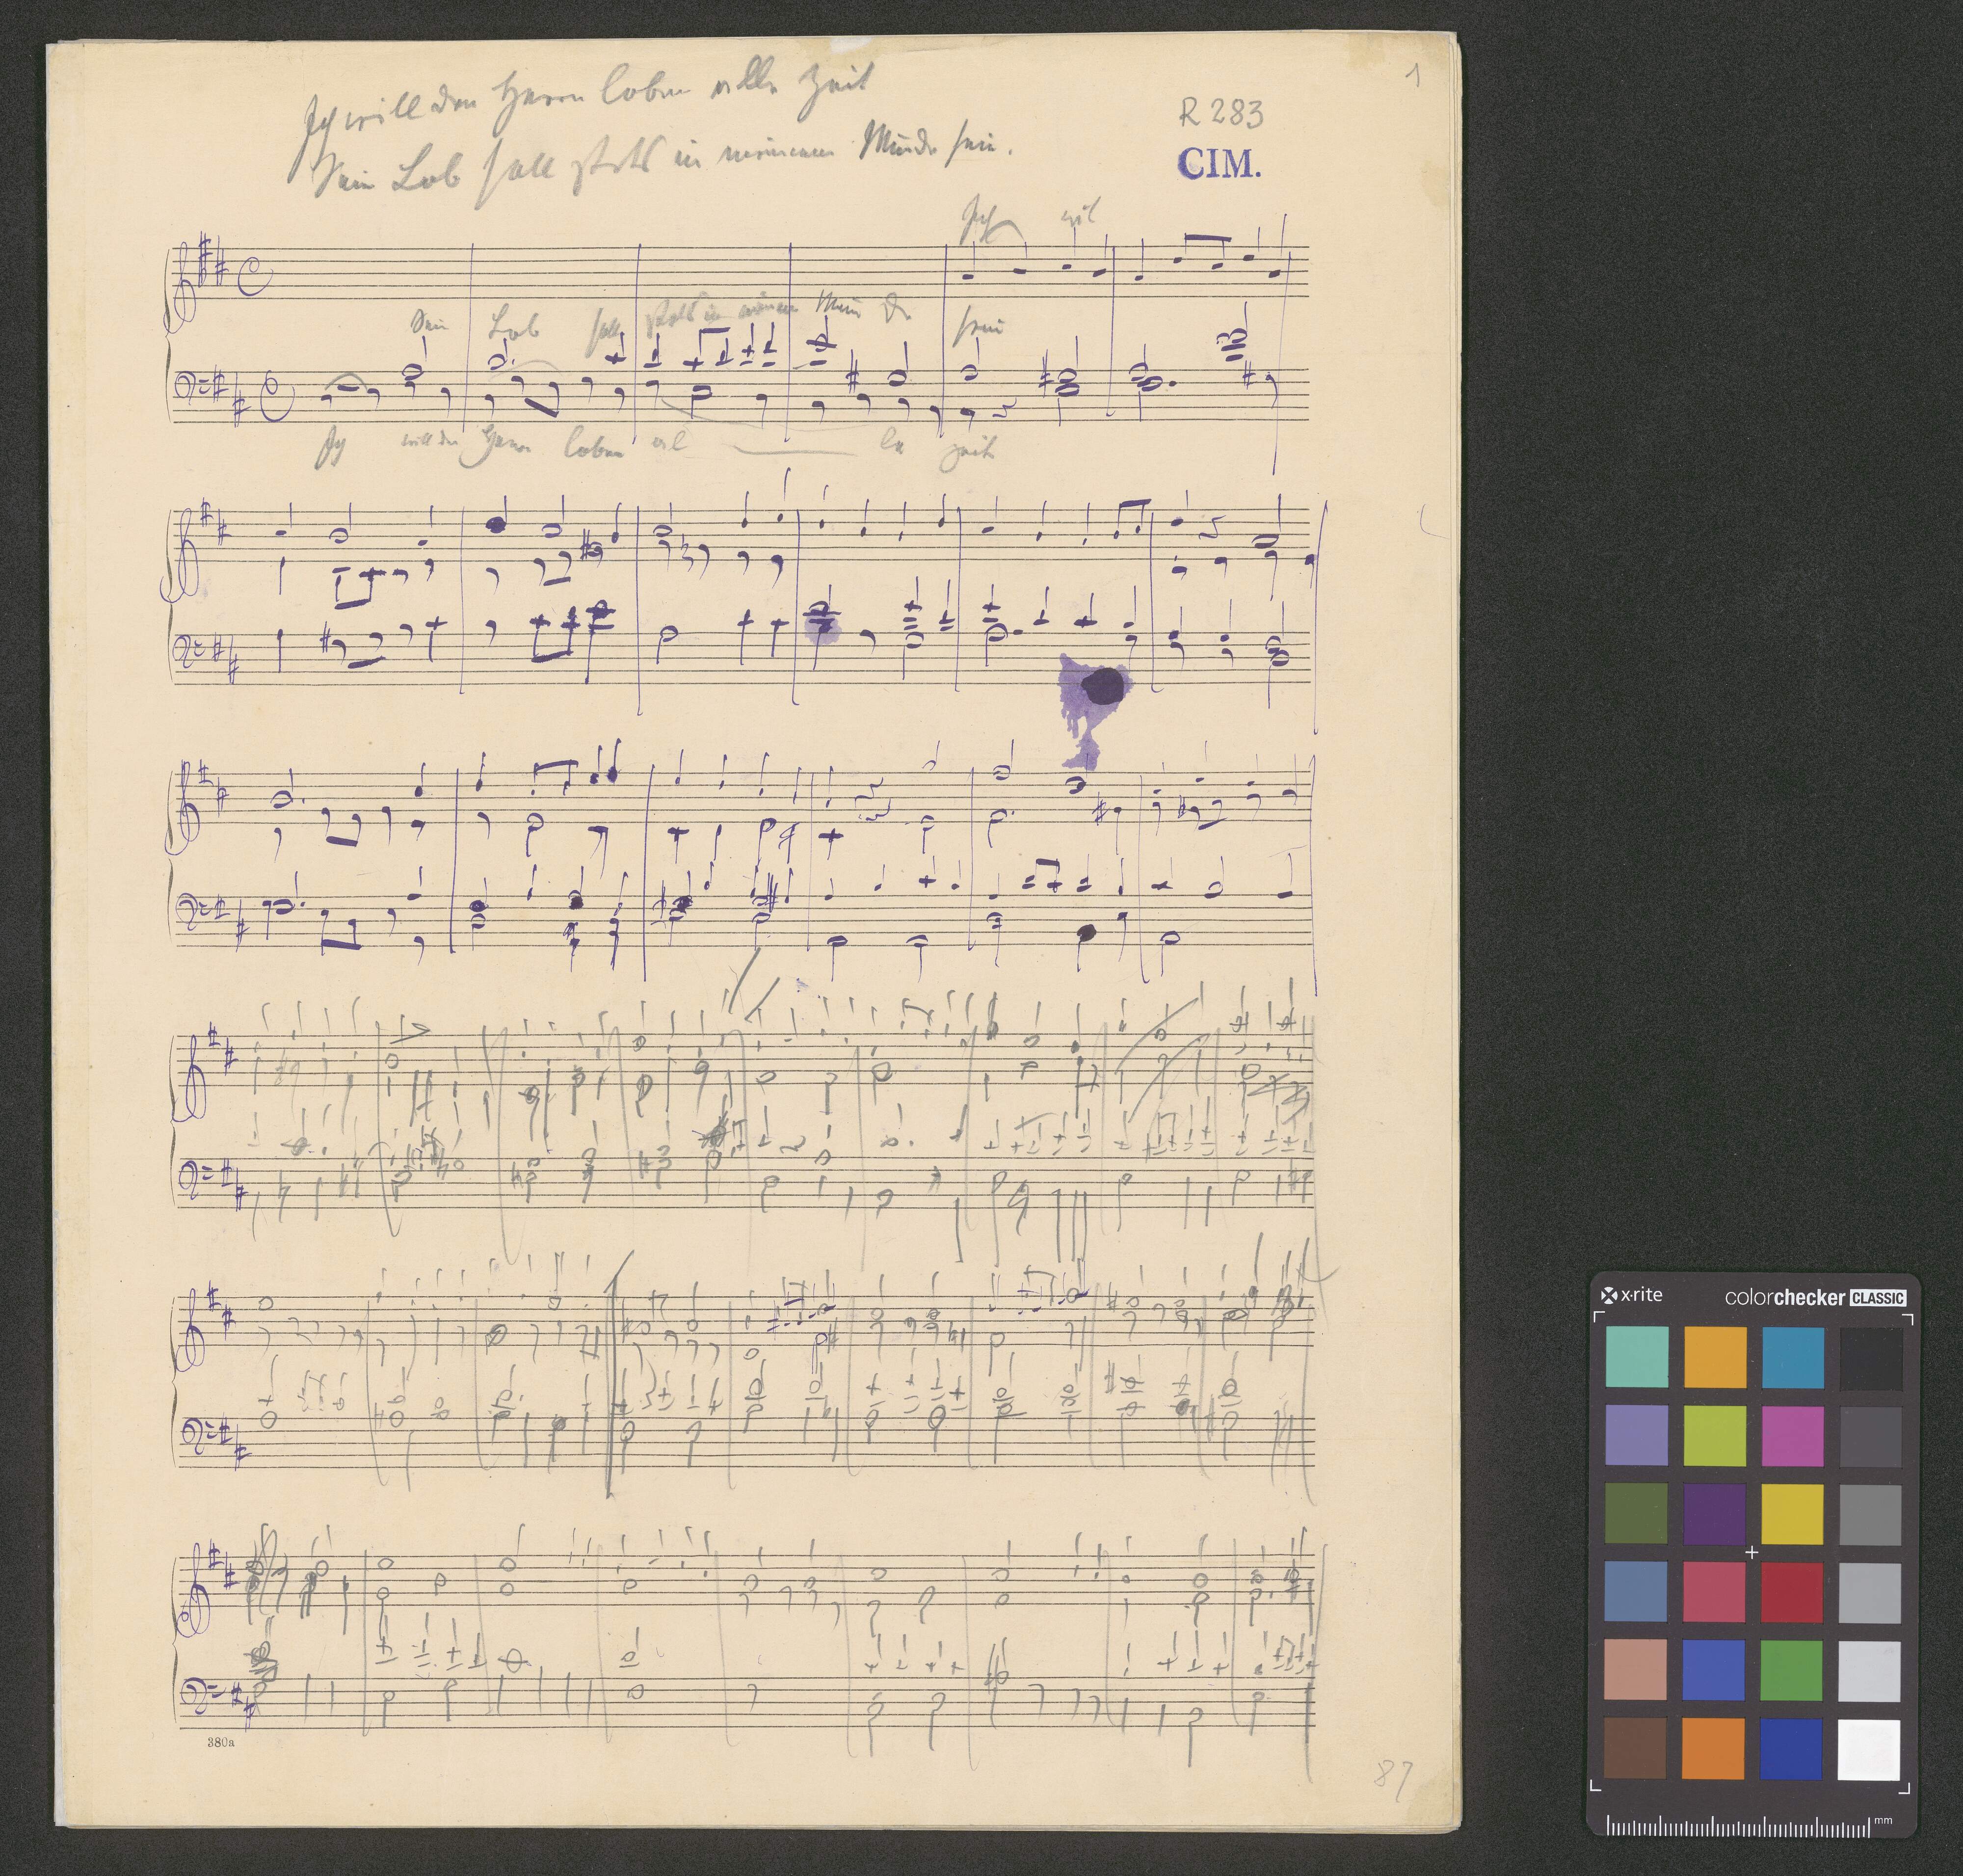 1
Ich will den Herrn loben alle Zeit
R 283
Sein Lob soll stets in meinem Munde sein.
CIM.
Ich wil
Sein Lob soll stets in meinem Mun de sein
Ich will den Herrn loben al le Zeit
380a
87
x-rite colorchecker CLASSIC
mm